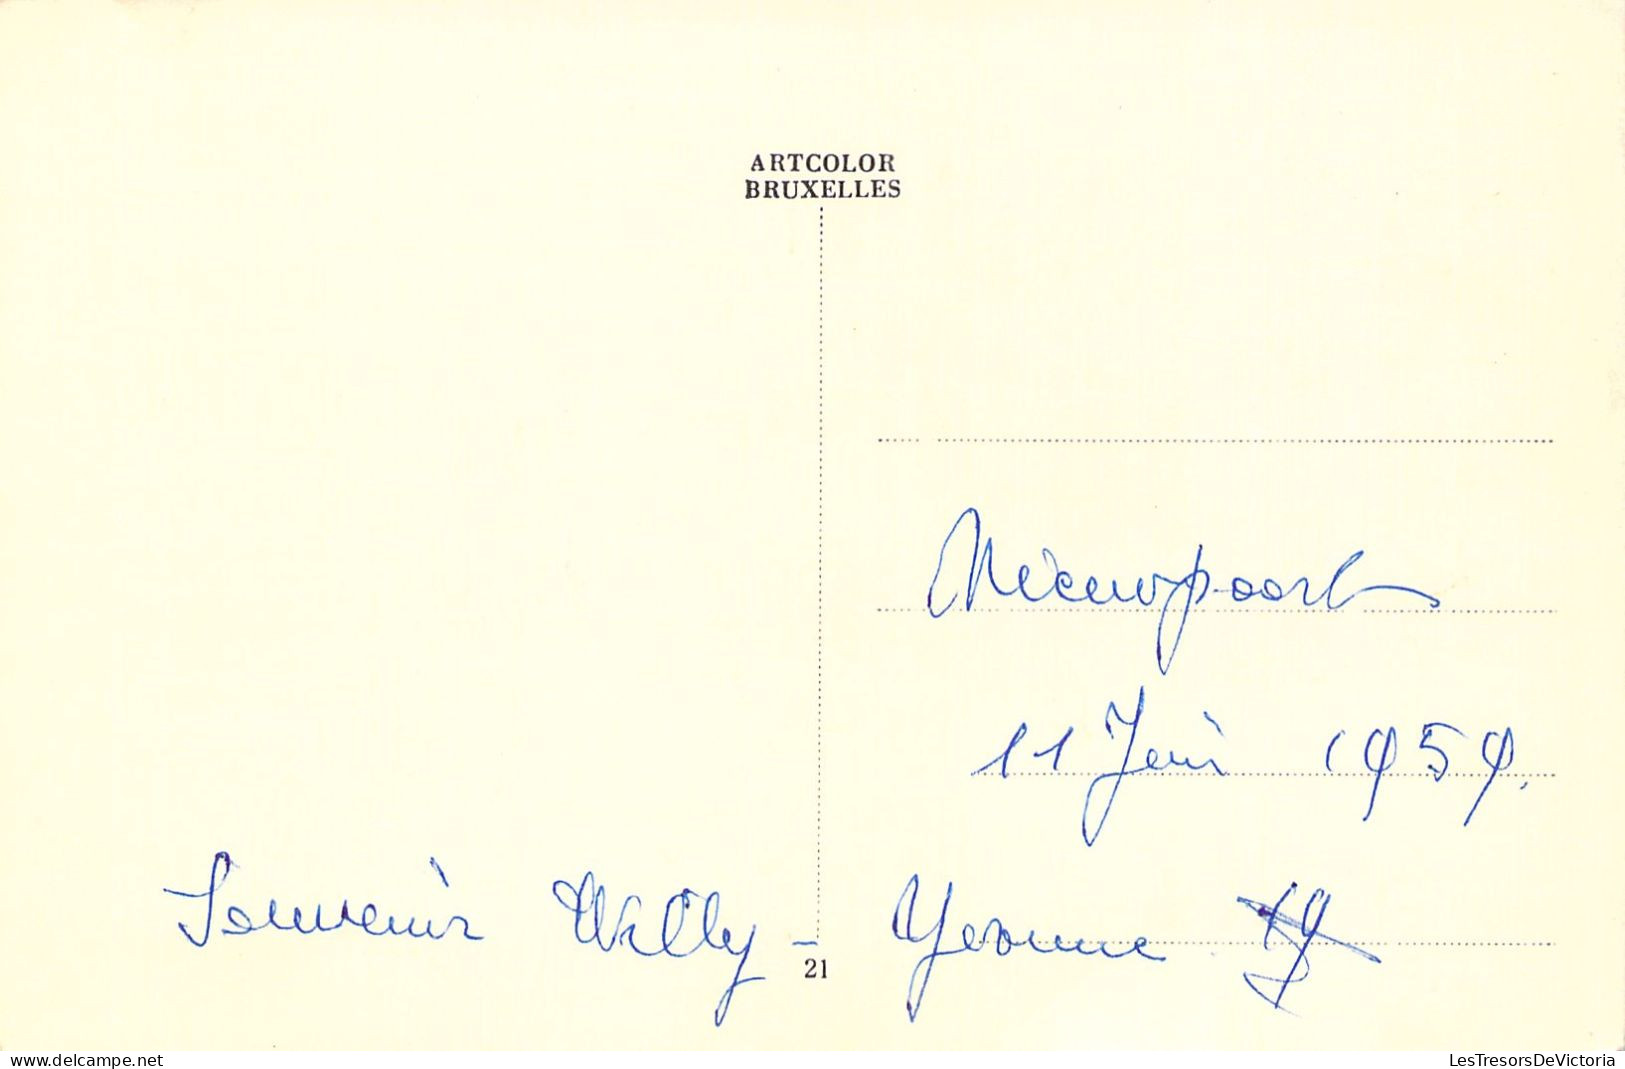 ARTCOLOR
BRUXELLES
Nieuwpoort
11 Juin 1959.
Souvenir Willy - Yvonne
21
www.delcampe.net
LesTresorsDeVictoria